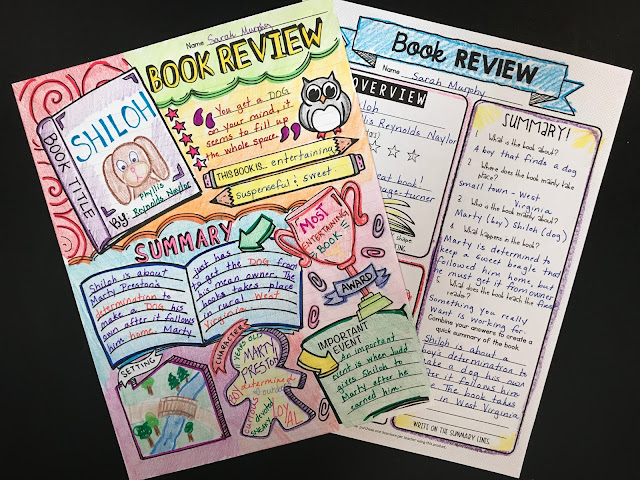 Name Sarah Murphy
BOOK REVIEW
SHILOH
BOOK TITLE
BY: Phyllis
Reynolds Naylor
"You get a DOG
on your mind, it
seems to fill up
the whole space."
THIS BOOK IS... entertaining
suspenseful & sweet
SUMMARY
Shiloh is about
Marty Preston's
determination to
make a DOG his
own after it follows
him home. Marty
just has
to get the DOG from
his mean owner. The
books takes place
in rural West
Virginia
MOST
ENTERTAINING
BOOK
AWARD
SETTING
CHARACTER
MARTY
PRESTON
determined
LOYAL
IMPORTANT
EVENT
An important
event is when Judd
gives Shiloh to
Marty after he
earned him.
Book REVIEW
Name Sarah Murphy
OVERVIEW
Shiloh
Phyllis Reynolds Naylor
great book!
page-turner
shape
SUMMARY!
1. What is the book about?
A boy that finds a dog
2. Where does the book mainly take
place?
small town - West
Virginia
3. Who is the book mainly about?
Marty (boy) Shiloh (dog)
4. What happens in the book?
Marty is determined to
keep a sweet beagle that
followed him home, but
he must get it from owner
5. What does the book teach the
reader?
Something you really
want is working for.
Combine your answers to create a
quick summary of the book
Shiloh is about a
boy's determination to
make a dog his own
after it follows him
home. The book takes
place in West Virginia
WRITE ON THE SUMMARY LINES